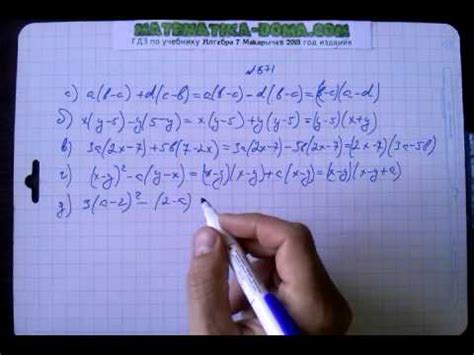 MATEMATIKA-DOMA.COM
ГДЗ по учебнику Алгебра 7 Макарычев 2013 год издания
№671
а) a(b-c)+d(c-b)=a(b-c)-d(b-c)=(b-c)(a-d)
б) x(y-5)-y(5-y)=x(y-5)+y(y-5)=(y-5)(x+y)
в) 3a(2x-7)+5b(7-2x)=3a(2x-7)-5b(2x-7)=(2x-7)(3a-5b)
г) (x-y)²-a(y-x)=(x-y)(x-y)+a(x-y)=(x-y)(x-y+a)
д) 3(a-2)²-(2-a)